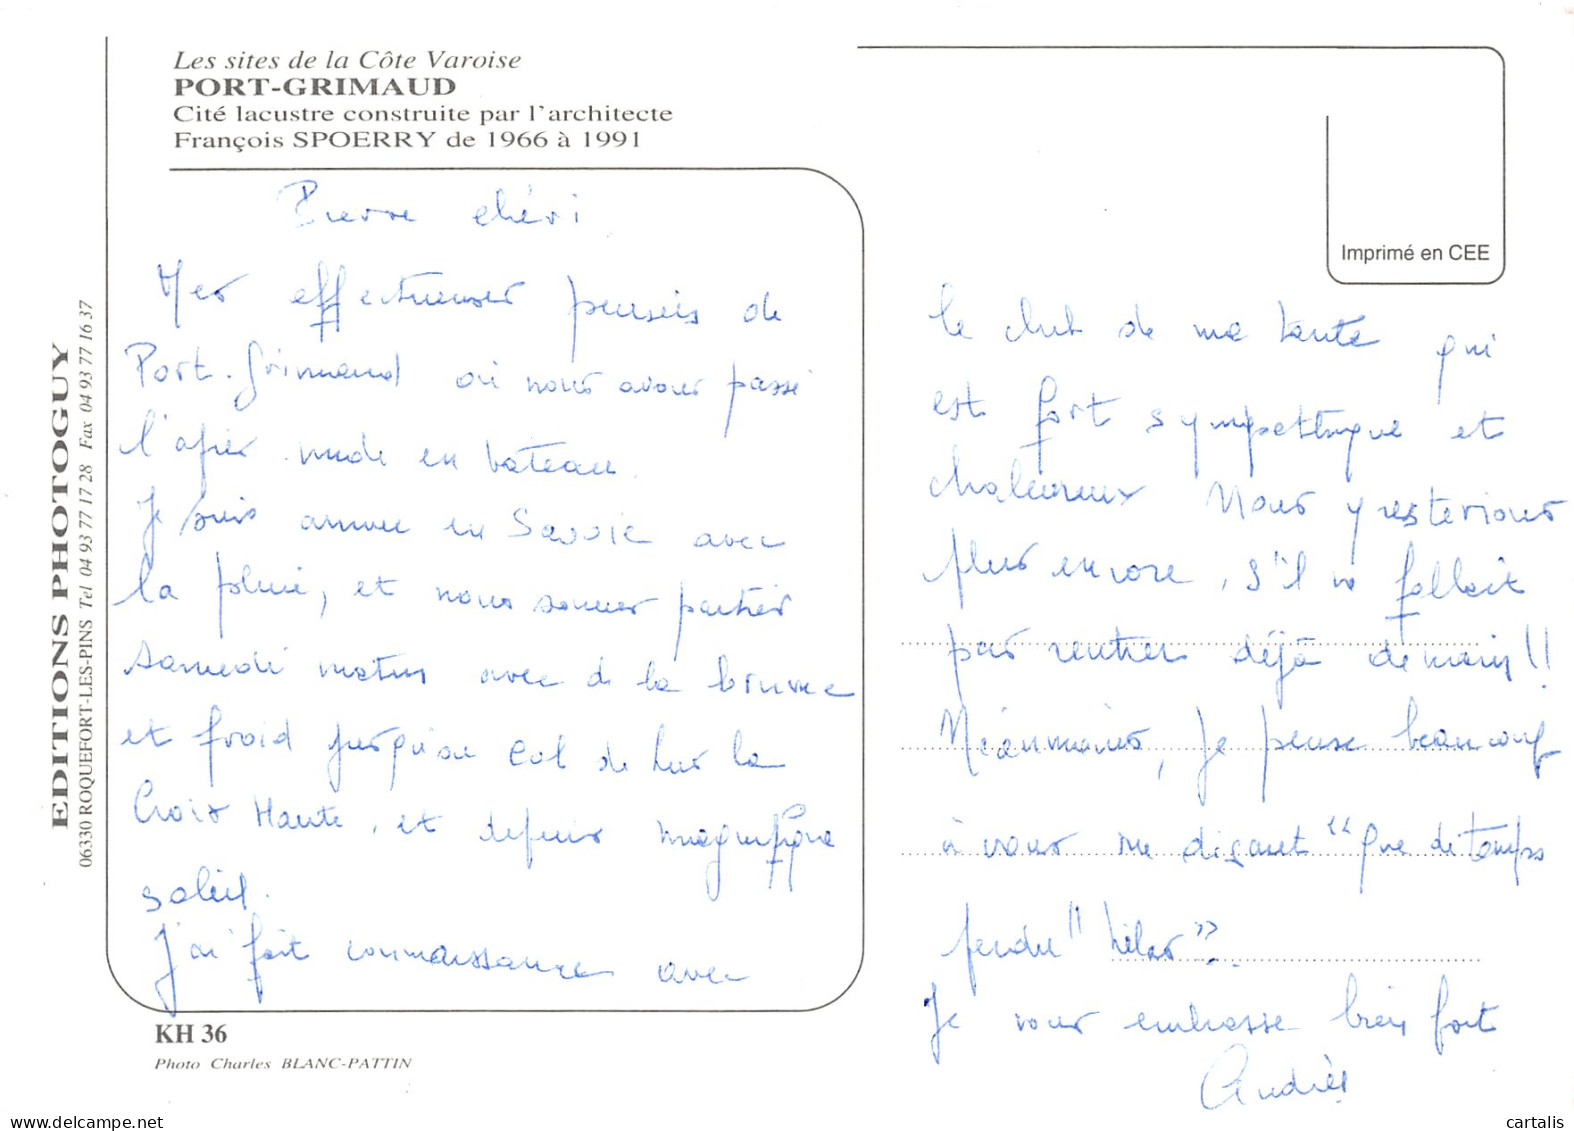 Les sites de la Côte Varoise
PORT-GRIMAUD
Cité lacustre construite par l'architecte
François SPOERRY de 1966 à 1991
Imprimé en CEE
EDITIONS PHOTOGUY
06330 ROQUEFORT-LES-PINS Tel 04 93 77 17 28 Fax 04 93 77 16 37
Pierre chéri
Mes affectueuses pensées de
Port-Grimaud où nous avons passé
l'après midi en bateau.
Je suis arrivée en Savoie avec
la pluie, et nous sommes partis
samedi matin avec de la brume
et froid jusqu'au col de Lus la
Croix Haute, et depuis magnifique
soleil.
J'ai fait connaissance avec
le club de ma tante qui
est fort sympathique et
chaleureux Nous y resterions
plus encore, s'il ne fallait
pas rentrer déjà demain!!
Néanmoins, je pense beaucoup
à vous me disant "que de temps
perdu" hélas".
Je vous embrasse bien fort
Andrée
KH 36
Photo Charles BLANC-PATTIN
cartalis